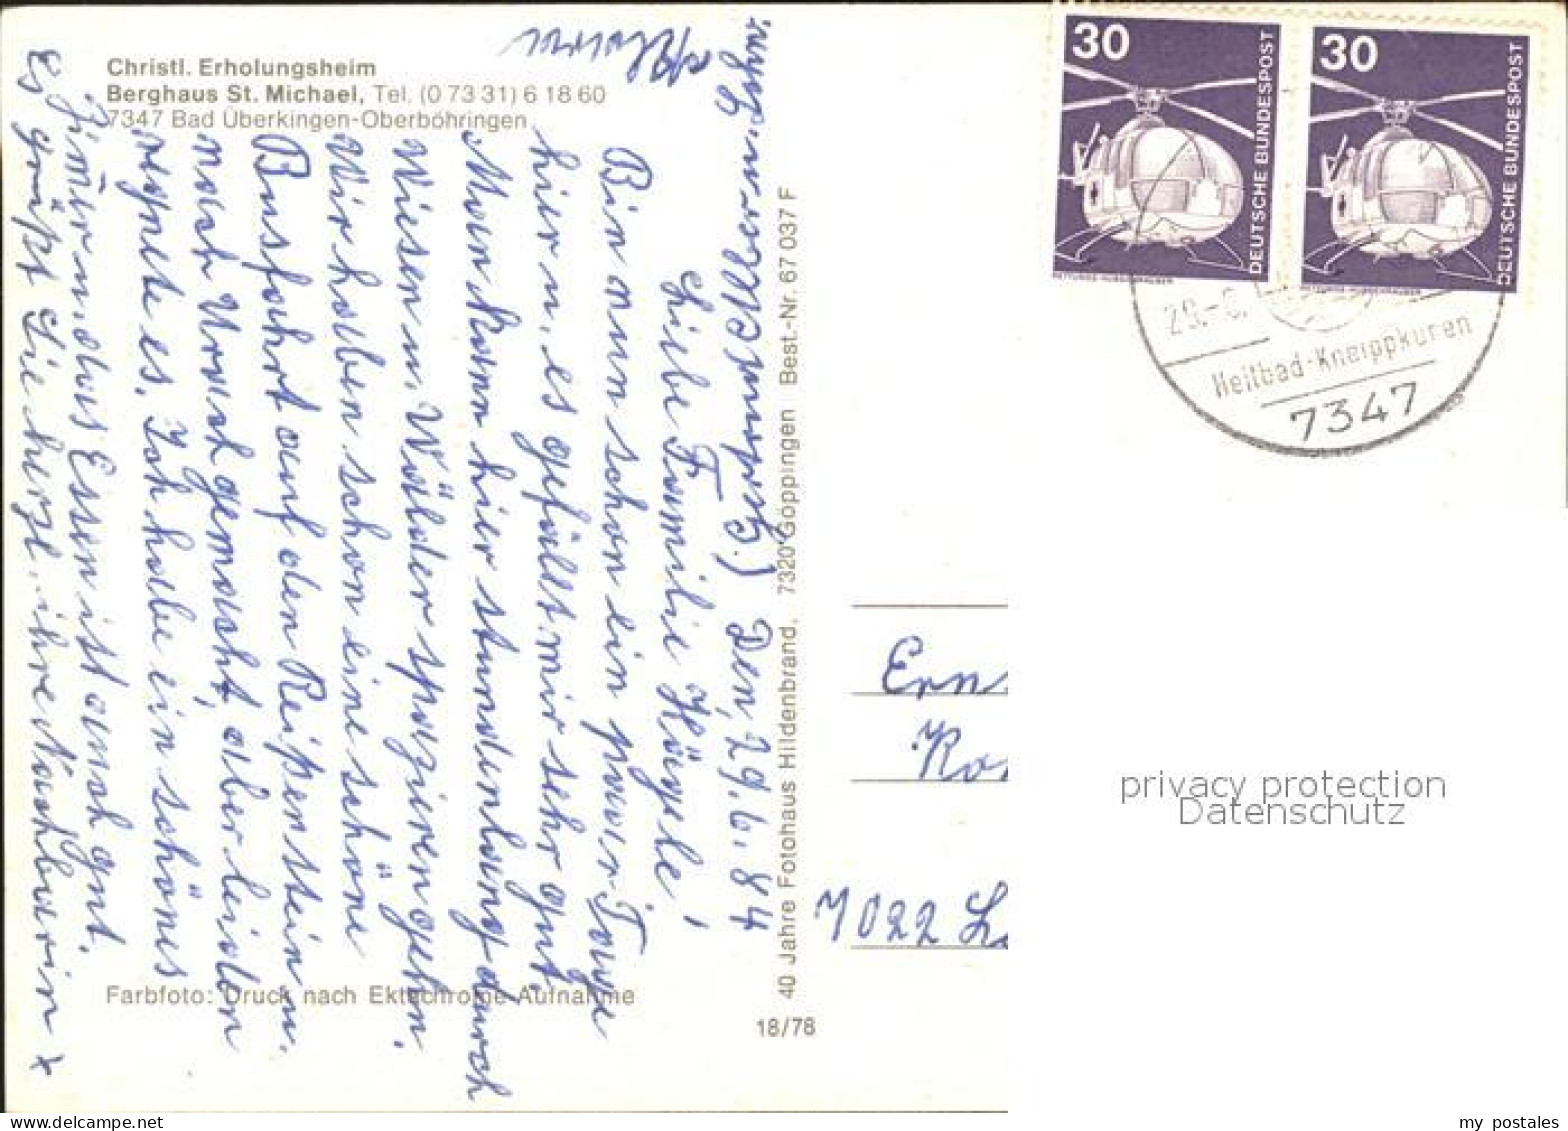 Christl. Erholungsheim
Berghaus St. Michael, Tel. (0 73 31) 6 18 60
7347 Bad Überkingen-Oberböhringen
Den, 29. 6. 84
Liebe Familie Hägele!
Bin nun schon ein paar Tage
hier u. es gefällt mir sehr gut.
Man kann hier stundenlang durch
Wiesen u. Wälder spazierengehn.
Wir haben schon eine schöne
Busfahrt auf den Reißenstein u.
nach Urach gemacht, aber leider
regnete es. Ich habe ein schönes
Zimmer u. das Essen ist auch gut.
Es grüßt Sie herzl. ihre Nachbarin
Farbfoto: Druck nach Ektachrome-Aufnahme
40 Jahre Fotohaus Hildenbrand, 7320 Göppingen Best.-Nr. 67 037 F
18/78
30
DEUTSCHE BUNDESPOST
30
DEUTSCHE BUNDESPOST
29.-6.
Heilbad-Kneippkuren
7347
Ern
7022 L
privacy protection
Datenschutz
my postales